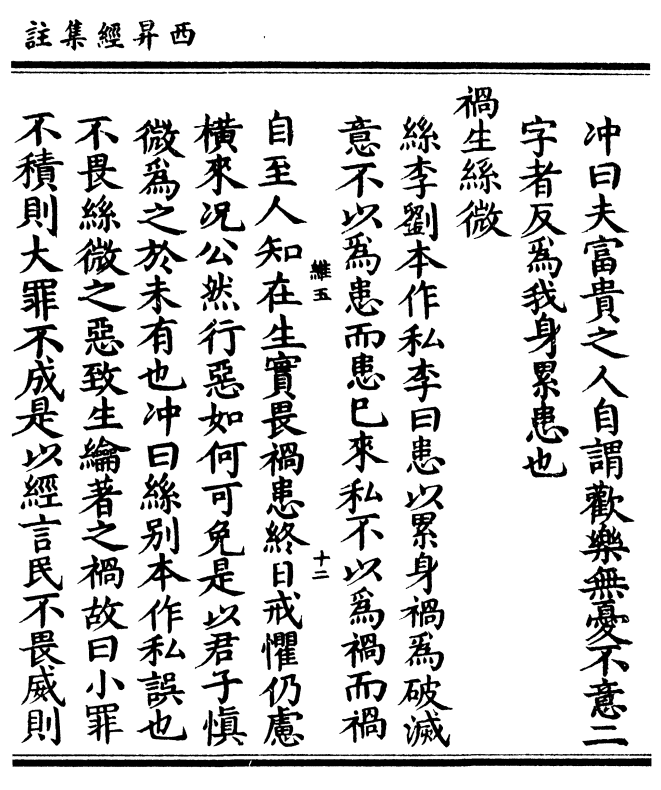 西昇經集註
冲曰夫富貴之人自謂歡樂無憂不意二
字者反爲我身累患也
禍生絲微
絲李劉本作私李曰患以累身禍爲破滅
意不以爲患而患已來私不以爲禍而禍
維五
十二
自至人知在生實畏禍患終日戒懼仍慮
橫來况公然行惡如何可免是以君子愼
微爲之於未有也冲曰絲别本作私誤也
不畏絲微之惡致生綸著之禍故曰小罪
不積則大罪不成是以經言民不畏威則